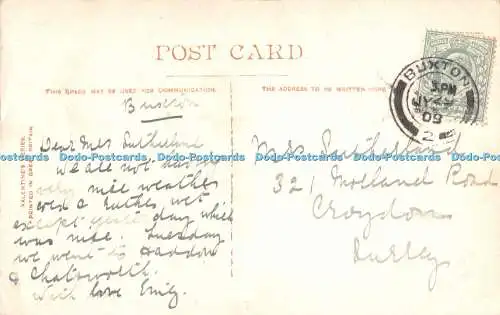 POST CARD
THIS SPACE MAY BE USED FOR COMMUNICATION.
THE ADDRESS TO BE WRITTEN HERE
VALENTINE'S SERIES
PRINTED IN GREAT BRITAIN
BUXTON
5 PM
09
2
Buxton
Dear Mrs Sutherland
We are not having
very nice weather
cold & rather wet
except yester day which
was nice. Tuesday
we went to Haddon
& Chatsworth.
With love Emily.
Mrs Sutherland
321 Road
Croydon
Surrey
Dodo-Postcards Dodo-Postcards Dodo-Postcards Dodo-Postcards
x-postcards.com